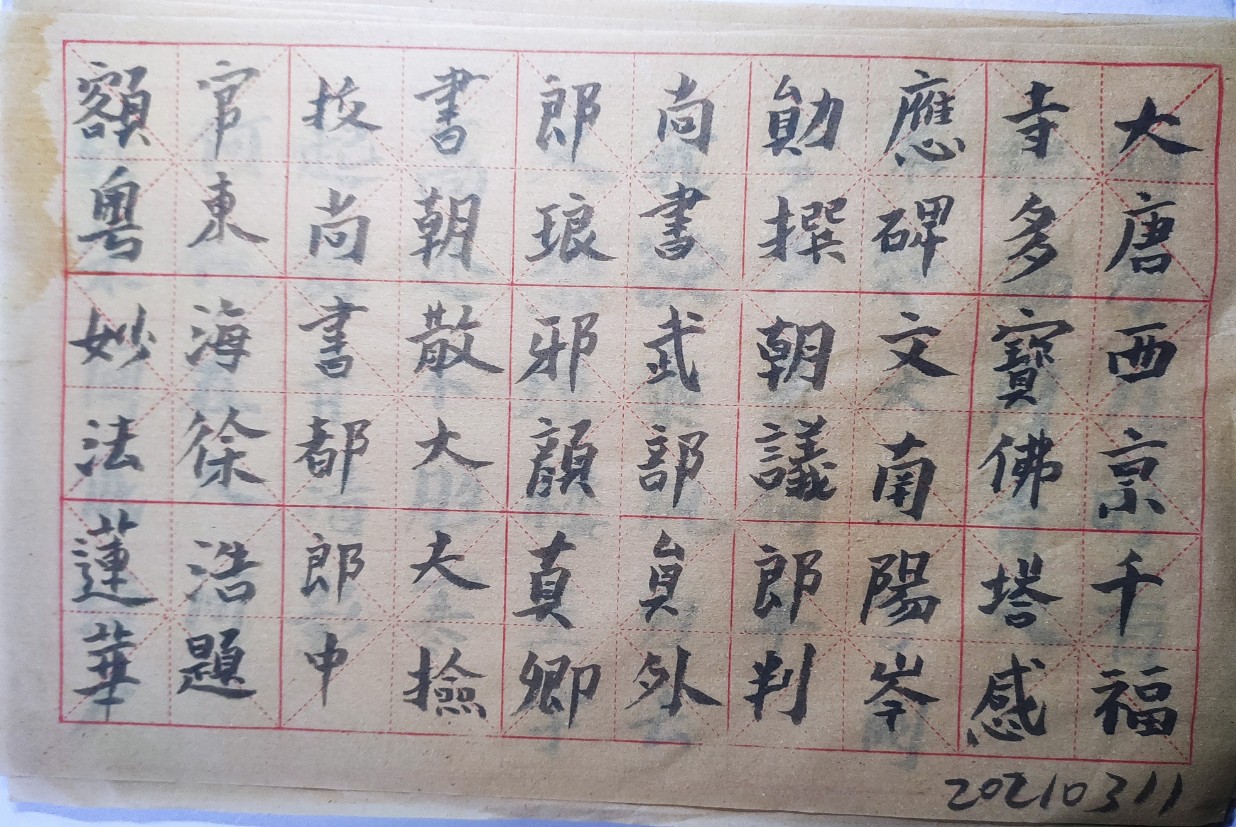 大唐西京千福
寺多寶佛塔感
應碑文南陽岑
勛撰朝議郎判
尚書武部員外
郎琅邪顏真卿
書朝散大夫撿
挍尚書都郎中
官東海徐浩題
額粵妙法蓮華
20210311